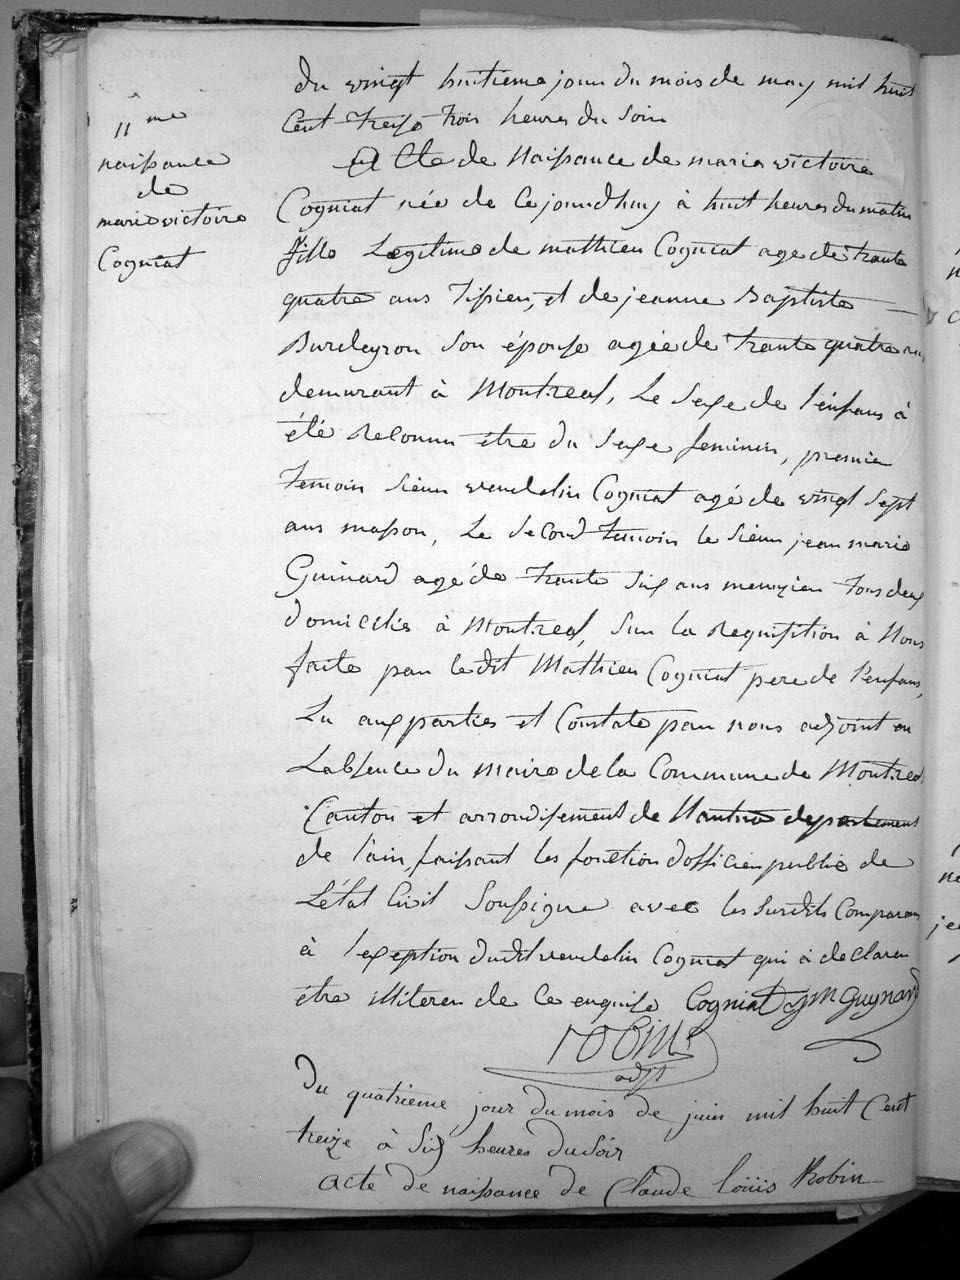 11me
naissance
de
marie victoire
Cogniat
du vingt huitieme jour du mois de may mil huit
Cent treise trois heures du soir
Acte de Naissance de marie victoire
Cogniat née de Ce jourdhuy à huit heures du matin
fille Legitime de mathieu Cogniat age de trante
quatre ans Tissien, et de jeanne Baptiste
Burdeyron son épouse agée de trante quatre ans
demurant à Montreal, Le sexe de l'enfans à
été Reconnu être du sexe feminin, premier
temoin sieur vendelin Cogniat agé de vingt sept
ans masson, Le second temoin le sieur jean marie
Guinard agé de trante six ans menuzien tous deux
domicilés à Montreal, sur la Requisition à Nous
faite par ledit Mathieu Cogniat pere de l'enfans,
Lu aux parties et Constaté par nous adjoint en
Labsence du maire de la Commune de Montreal
Canton et arrondisement de Nantua departement
de l'ain, faissant les fonction d'officier public de
L'état Civil soussigne avec les surdits Comparans
à l'exeption dudit vendelin Cogniat qui à declarer
être illiteren de Ce enquise Cogniat jm Guynard
robin
adjt
Du quatrieme jour du mois de juin mil huit Cent
treize à Six heures du Soir
acte de naissance de Claude Loüis Robin